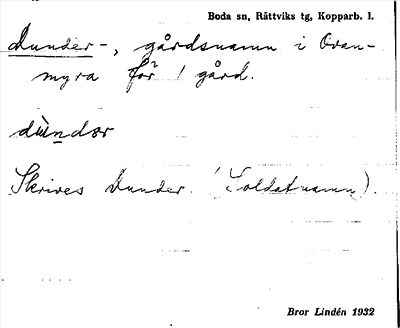 Boda sn, Rättviks tg, Kopparb. l.
Dunder-, gårdsnamn i Ovan-
myra för 1 gård.
dùndər
Skrives Dunder. (Soldatnamn).
Bror Lindén 1932